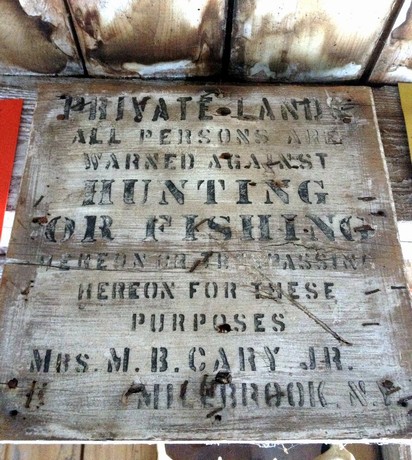 PRIVATE LAND
ALL PERSONS ARE
WARNED AGAINST
HUNTING
OR FISHING
HEREON OR TRESPASSING
HEREON FOR THESE
PURPOSES
MRS. M. B. CARY JR.
MILLBROOK, N.Y.